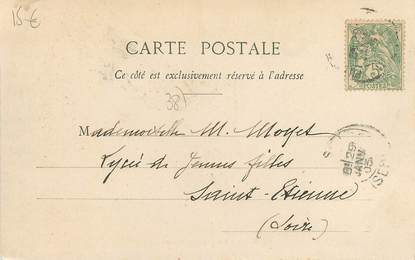 15-€
CARTE POSTALE
Ce côté est exclusivement réservé à l'adresse
38)
Mademoiselle M. Moyet
Lycée de Jeunes filles
Saint-Etienne
(Loire)
29
JANV
05